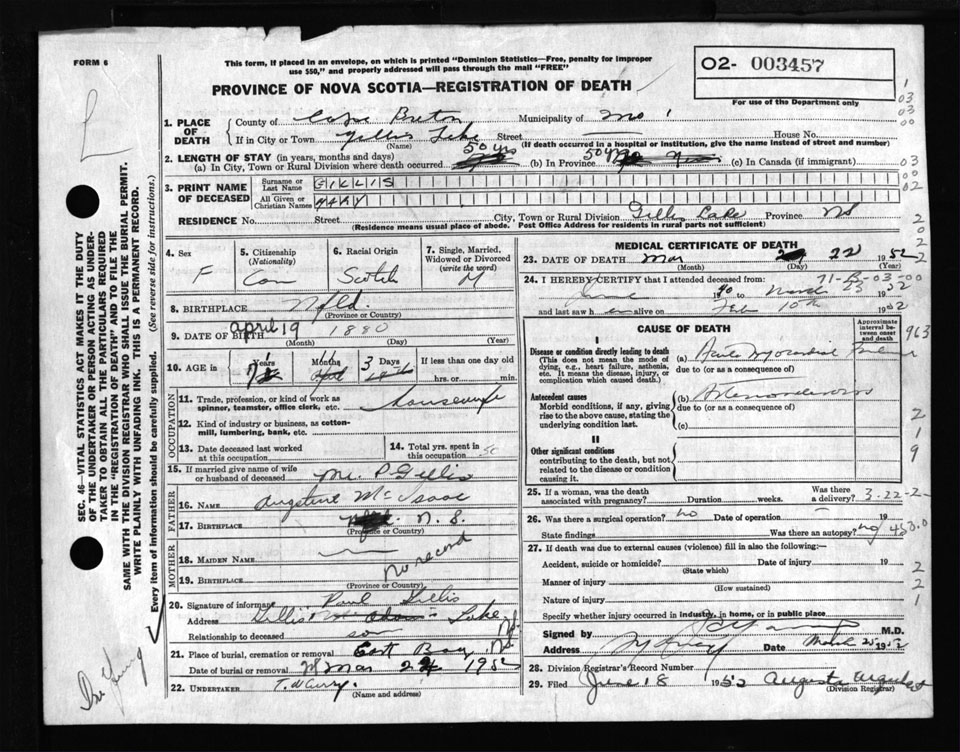 FORM 6
This form, if placed in an envelope, on which is printed "Dominion Statistics—Free, penalty for improper
use $50," and properly addressed will pass through the mail "FREE"
PROVINCE OF NOVA SCOTIA—REGISTRATION OF DEATH
O2- 003457
For use of the Department only
1. PLACE OF DEATH
County of Cape Breton Municipality of
If in City or Town Gillis Lake Street House No.
(Name) (If death occurred in a hospital or institution, give the name instead of street and number)
2. LENGTH OF STAY (in years, months and days)
(a) In City, Town or Rural Division where death occurred 50 yrs (b) In Province 50 (c) In Canada (if immigrant)
3. PRINT NAME OF DECEASED
Surname or Last Name GILLIS
All Given or Christian Names MARY
RESIDENCE No. Street City, Town or Rural Division Gillis Lake Province NS
(Residence means usual place of abode. Post Office Address for residents in rural parts not sufficient)
4. Sex F
5. Citizenship (Nationality) Can
6. Racial Origin Scotch
7. Single, Married, Widowed or Divorced (write the word) M
8. BIRTHPLACE Nfld.
(Province or Country)
9. DATE OF BIRTH April 19 1880
(Month) (Day) (Year)
10. AGE in Years Months 3 Days If less than one day old
hrs. or min.
OCCUPATION
11. Trade, profession, or kind of work as spinner, teamster, office clerk, etc. housewife
12. Kind of industry or business, as cotton-mill, lumbering, bank, etc.
13. Date deceased last worked at this occupation
14. Total yrs. spent in this occupation 50
15. If married give name of wife or husband of deceased P Gillis
FATHER
16. NAME McIsaac
17. BIRTHPLACE N. S.
(Province or Country)
MOTHER
18. MAIDEN NAME
19. BIRTHPLACE no record
(Province or Country)
20. Signature of informant Paul Gillis
Address Gillis Lake
Relationship to deceased son
21. Place of burial, cremation or removal East Bay
Date of burial or removal Mar 24 1952
22. UNDERTAKER T. W Curry.
(Name and address)
MEDICAL CERTIFICATE OF DEATH
23. DATE OF DEATH Mar 22 1952
(Month) (Day) (Year)
24. I HEREBY CERTIFY that I attended deceased from:
71-B-03-00
June 1940 to March 23 1952
and last saw h er alive on Feb 10th 1952
CAUSE OF DEATH
Approximate interval between onset and death
I
Disease or condition directly leading to death
(This does not mean the mode of dying, e.g., heart failure, asthenia, etc. It means the disease, injury, or complication which caused death.)
(a) Acute Myocardial Failure
due to (or as a consequence of)
Antecedent causes
Morbid conditions, if any, giving rise to the above cause, stating the underlying condition last.
(b) Arteriosclerosis
due to (or as a consequence of)
(c)
II
Other significant conditions
contributing to the death, but not related to the disease or condition causing it.
25. If a woman, was the death associated with pregnancy? Duration weeks. Was there a delivery? 3-22-2
26. Was there a surgical operation? no Date of operation 19
State findings Was there an autopsy? no 450.0
27. If death was due to external causes (violence) fill in also the following:—
Accident, suicide or homicide? Date of injury 19
(State which)
Manner of injury
(How sustained)
Nature of injury
Specify whether injury occurred in industry, in home, or in public place
Signed by M.D.
Address Date March 25 1952
28. Division Registrar's Record Number
29. Filed June 18 1952 Augusta
(Division Registrar)
SEC. 46—VITAL STATISTICS ACT MAKES IT THE DUTY
OF THE UNDERTAKER OR PERSON ACTING AS UNDER-
TAKER TO OBTAIN ALL THE PARTICULARS REQUIRED
IN THE "REGISTRATION OF DEATH" AND TO FILE THE
SAME WITH THE DIVISION REGISTRAR WHO SHALL ISSUE THE BURIAL PERMIT.
WRITE PLAINLY WITH UNFADING INK. THIS IS A PERMANENT RECORD.
Every item of information should be carefully supplied. (See reverse side for instructions.)
963